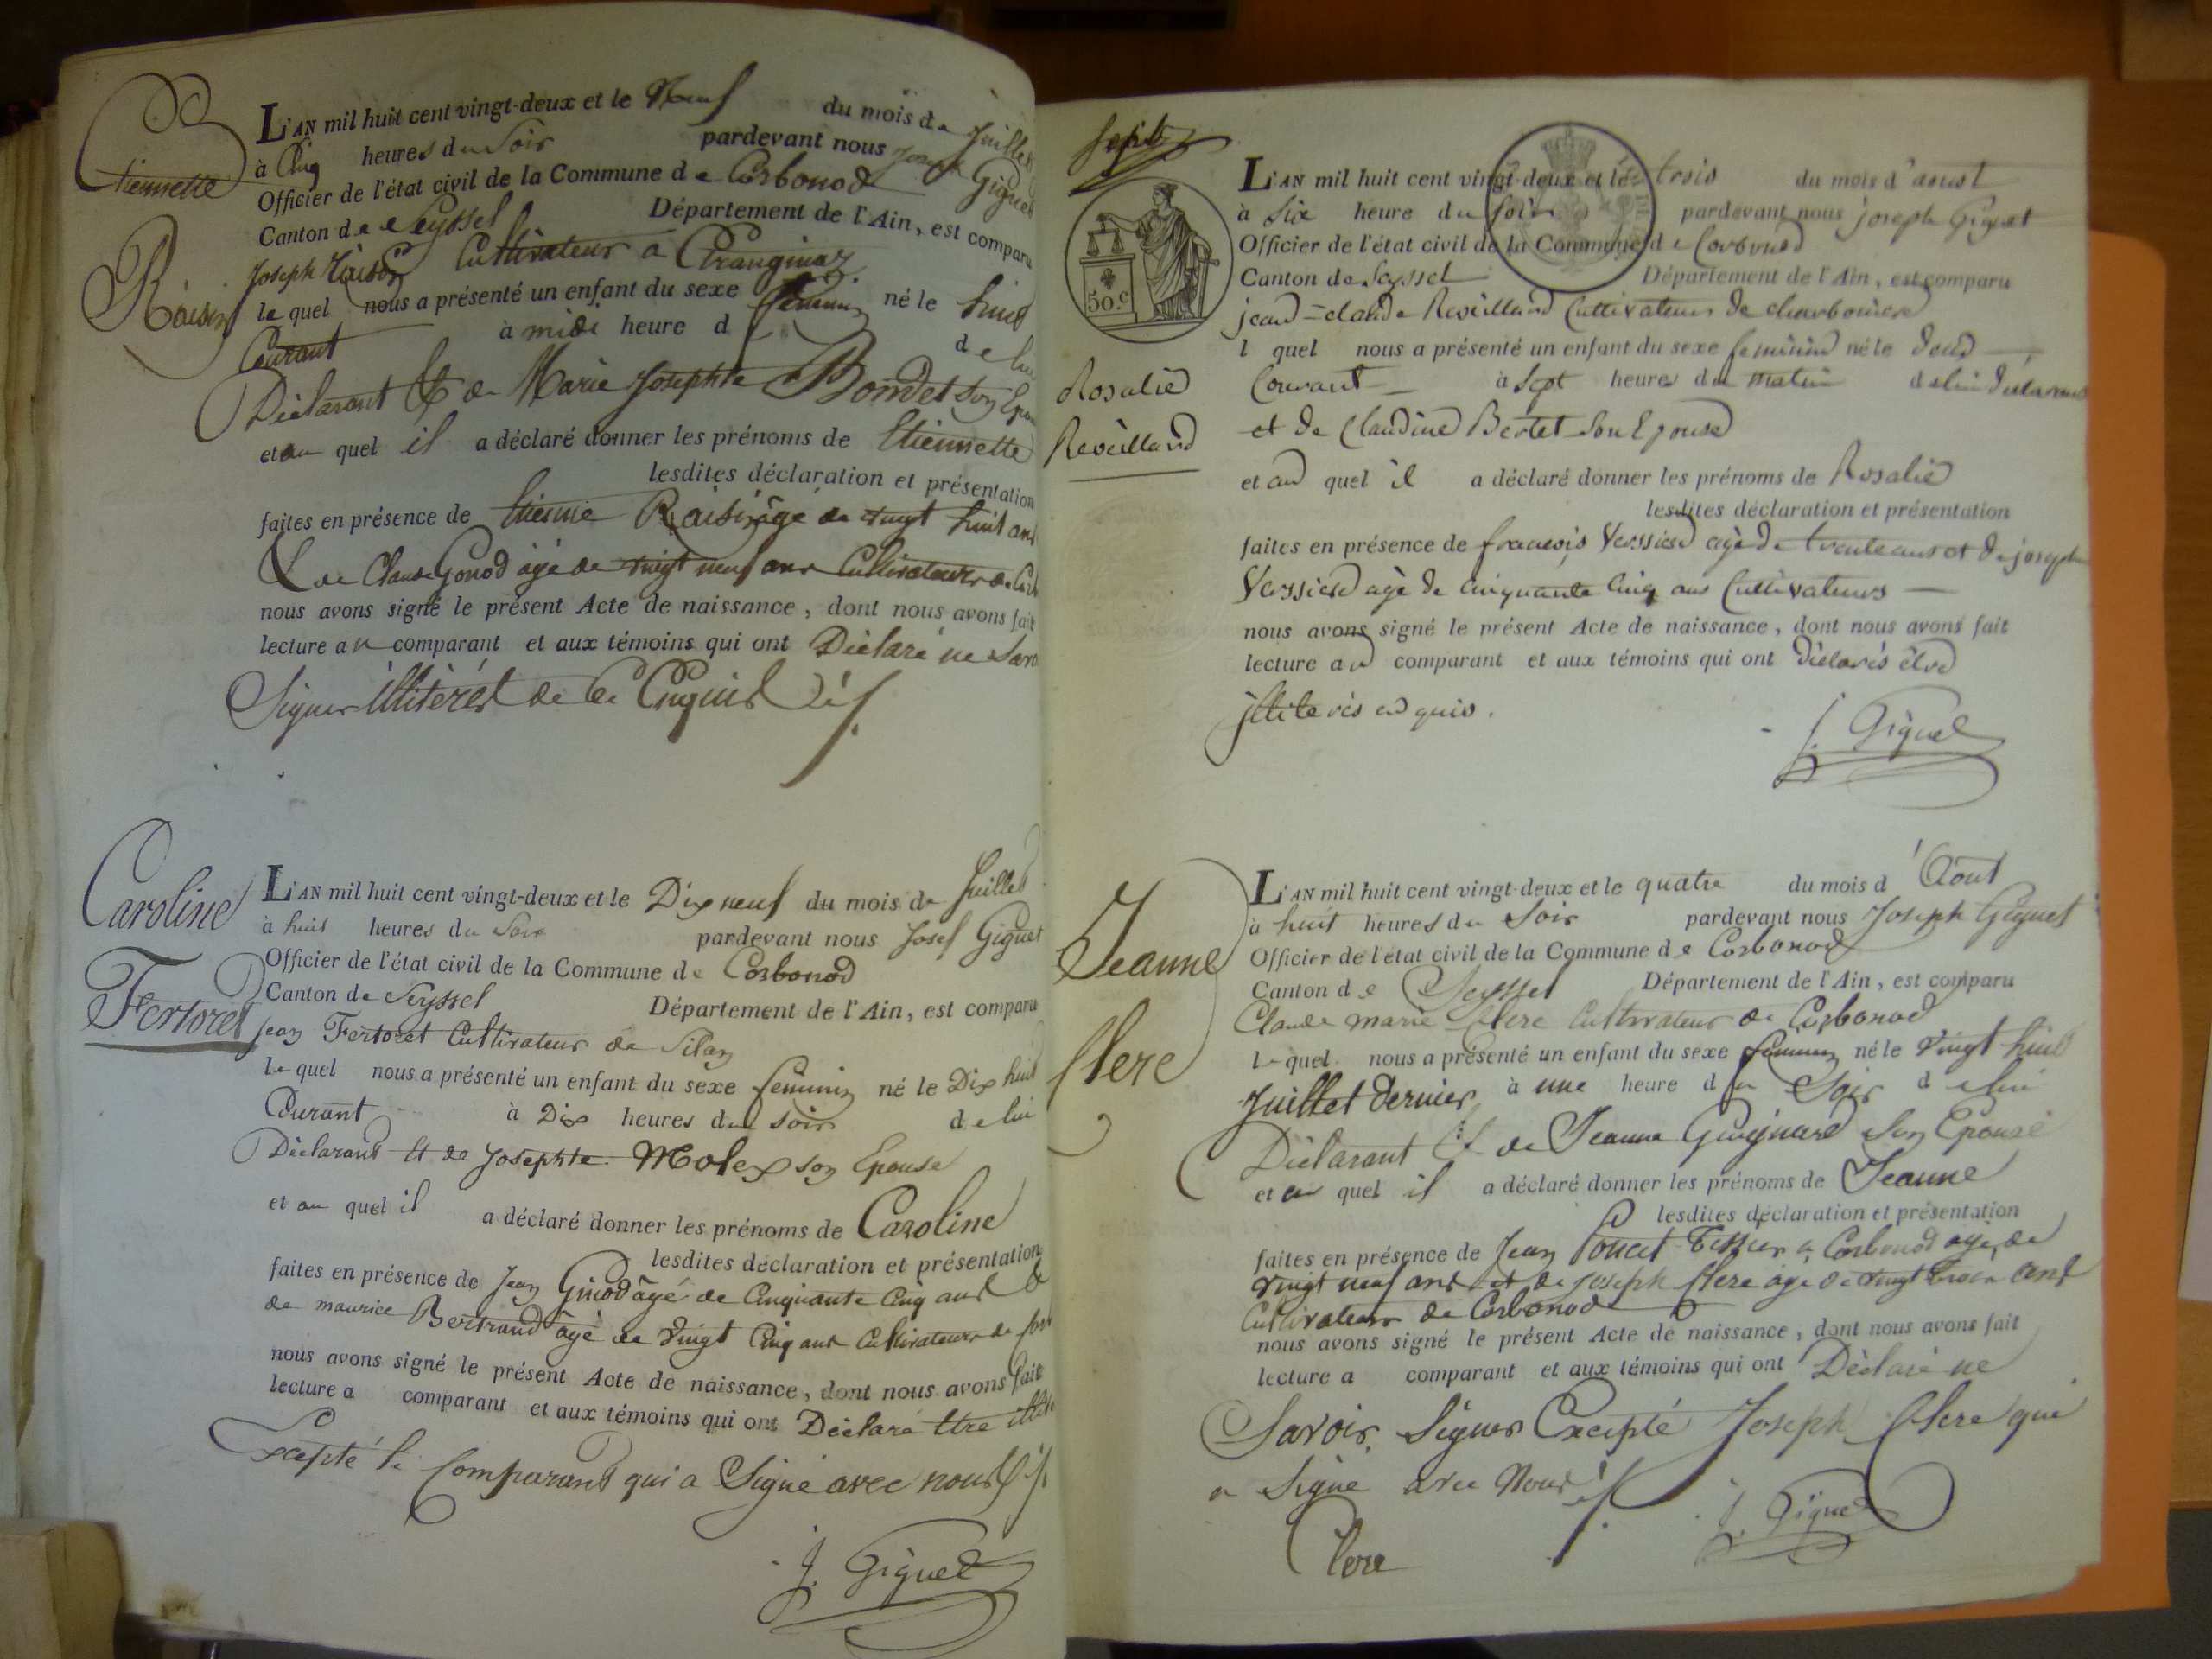 Etiennette
Raisin
L'AN mil huit cent vingt-deux et le Neuf du mois de Juillet
à Cinq heures du Soir pardevant nous Joseph Giguet
Officier de l'état civil de la Commune de Corbonod
Canton de Seyssel Département de l'Ain, est comparu
Joseph Raisin Cultivateur a
le quel nous a présenté un enfant du sexe feminin né le huit
Courant à midi heure d de lui
Déclarant Et de Marie Josephte Bondet son Epou
et au quel il a déclaré donner les prénoms de Etiennette
lesdites déclaration et présentation
faites en présence de Etienne Raisin âgé de vingt huit ans
Et de Claude Gonod âgé de vingt neuf ans Cultivateurs de Corb
nous avons signé le présent Acte de naissance, dont nous avons fait
lecture au comparant et aux témoins qui ont Déclaré ne Savo
Signer illitérés de ce Enquis
Caroline
Fertoret
L'AN mil huit cent vingt-deux et le Dix neuf du mois de Juillet
à huit heures du Soir pardevant nous Josef Giguet
Officier de l'état civil de la Commune de Corbonod
Canton de Seyssel Département de l'Ain, est comparu
Jean Fertoret Cultivateur de Silan
le quel nous a présenté un enfant du sexe feminin né le Dix huit
Courant à Dix heures du soir de lui
Déclarant Et de Josephte Molex son Epouse
et au quel il a déclaré donner les prénoms de Caroline
lesdites déclaration et présentation
faites en présence de Jean Ginod âgé de Cinquante Cinq ans Et
de maurice Bertrand âgé de vingt Cinq ans Cultivateurs de
nous avons signé le présent Acte de naissance, dont nous avons fait
lecture a comparant et aux témoins qui ont Déclaré Etre illite
Excepté le Comparant qui a Signé avec nous
J. Giguet
Sept
50.c
Rosalie
Reveillard
L'AN mil huit cent vingt-deux et le trois du mois d'aoust
à Six heure du soir pardevant nous joseph Giguet
Officier de l'état civil de la Commune de Corbonod
Canton de Seyssel Département de l'Ain, est comparu
jean=claude Reveillard Cultivateur de charboniere
l quel nous a présenté un enfant du sexe feminin né le deux
Courant à Sept heures du matin de lui déclarant
et de Claudine Bertet Son Epouse
et au quel il a déclaré donner les prénoms de Rosalie
lesdites déclaration et présentation
faites en présence de françois Veyssiere agé de trente ans et de joseph
Veyssiere agé de Cinquante Cinq ans Cultivateurs
nous avons signé le présent Acte de naissance, dont nous avons fait
lecture au comparant et aux témoins qui ont déclarés être
jlliterés enquis.
J. Giguet
Jeanne
Clerc
L'AN mil huit cent vingt-deux et le quatre du mois d'Aout
à huit heures du Soir pardevant nous Joseph Giguet
Officier de l'état civil de la Commune de Corbonod
Canton de Seyssel Département de l'Ain, est comparu
Claude marie Clerc Cultivateur de Corbonod
le quel nous a présenté un enfant du sexe féminin né le vingt huit
Juillet dernier à une heure du Soir de lui
Déclarant Et de Jeanne Guignard Son Epouse
et au quel il a déclaré donner les prénoms de Jeanne
lesdites déclaration et présentation
faites en présence de Jean Poncet Tissier a Corbonod âgé de
vingt neuf ans et de joseph Clerc âgé de vingt trois ans
Cultivateur de Corbonod
nous avons signé le présent Acte de naissance, dont nous avons fait
lecture a comparant et aux témoins qui ont Déclaré ne
Savoir Signer Excepté Joseph Clerc qui
a Signé avec Nous
J. Giguet
Clerc